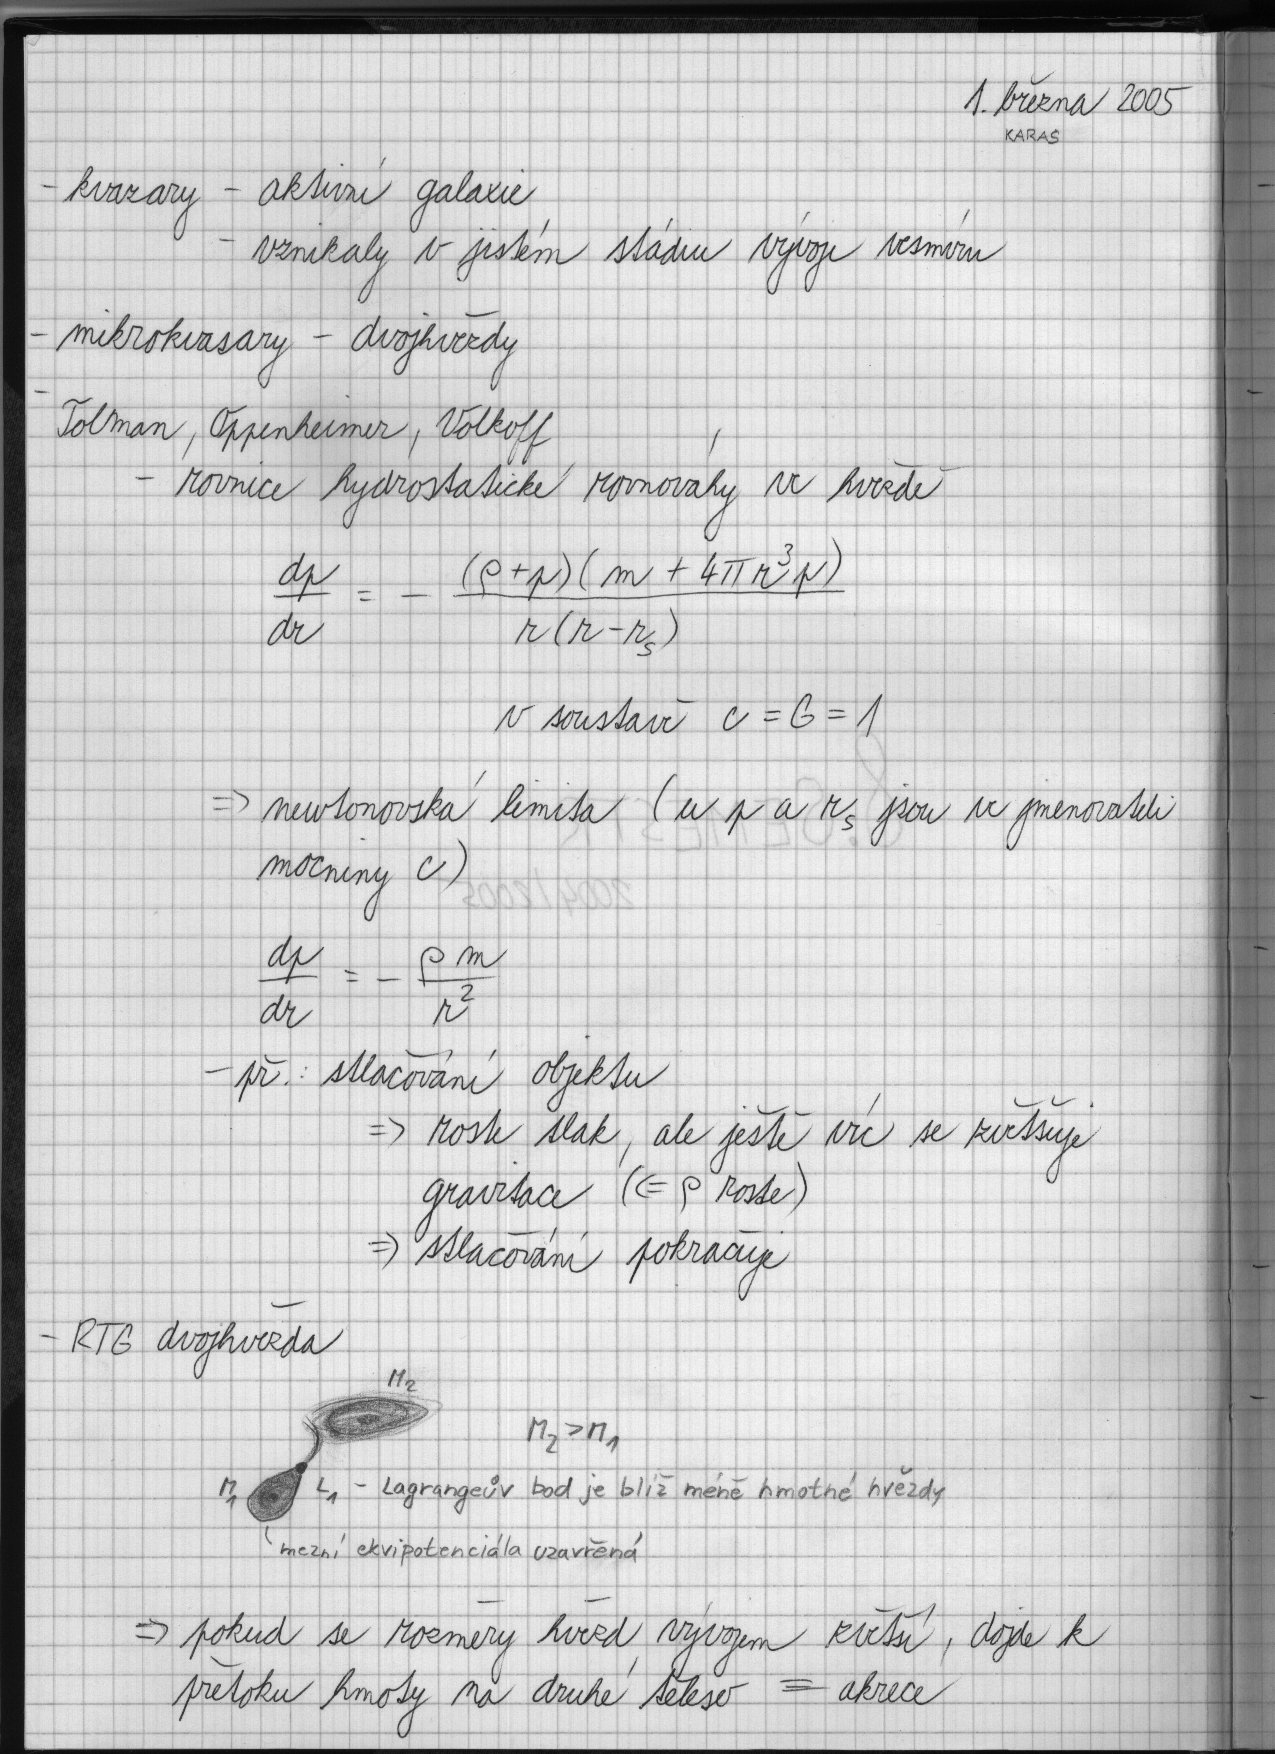 1. března 2005
KARAS
- kvazary - aktivní galaxie
- vznikaly v jistém stádiu vývoje vesmíru
- mikrokvasary - dvojhvězdy
-
Tolman, Oppenheimer, Volkoff
- rovnice hydrostatické rovnováhy ve hvězdě
dp/dr = - (ρ+p)(m + 4πr³p) / r(r-r_s)
v soustavě c = G = 1
=> newtonovská limita (u p a r_s jsou ve jmenovateli
mocniny c)
dp/dr = - ρ m / r²
- př.: stlačování objektu
=> roste tlak, ale ještě víc se zvětšuje
gravitace (<= ρ roste)
=> stlačování pokračuje
- RTG dvojhvězda
M₂
M₂ > M₁
M₁ L₁ - Lagrangeův bod je blíž méně hmotné hvězdy
mezní ekvipotenciála uzavřená
=> pokud se rozměry hvězd vývojem zvětší, dojde k
přetoku hmoty na druhé těleso = akrece